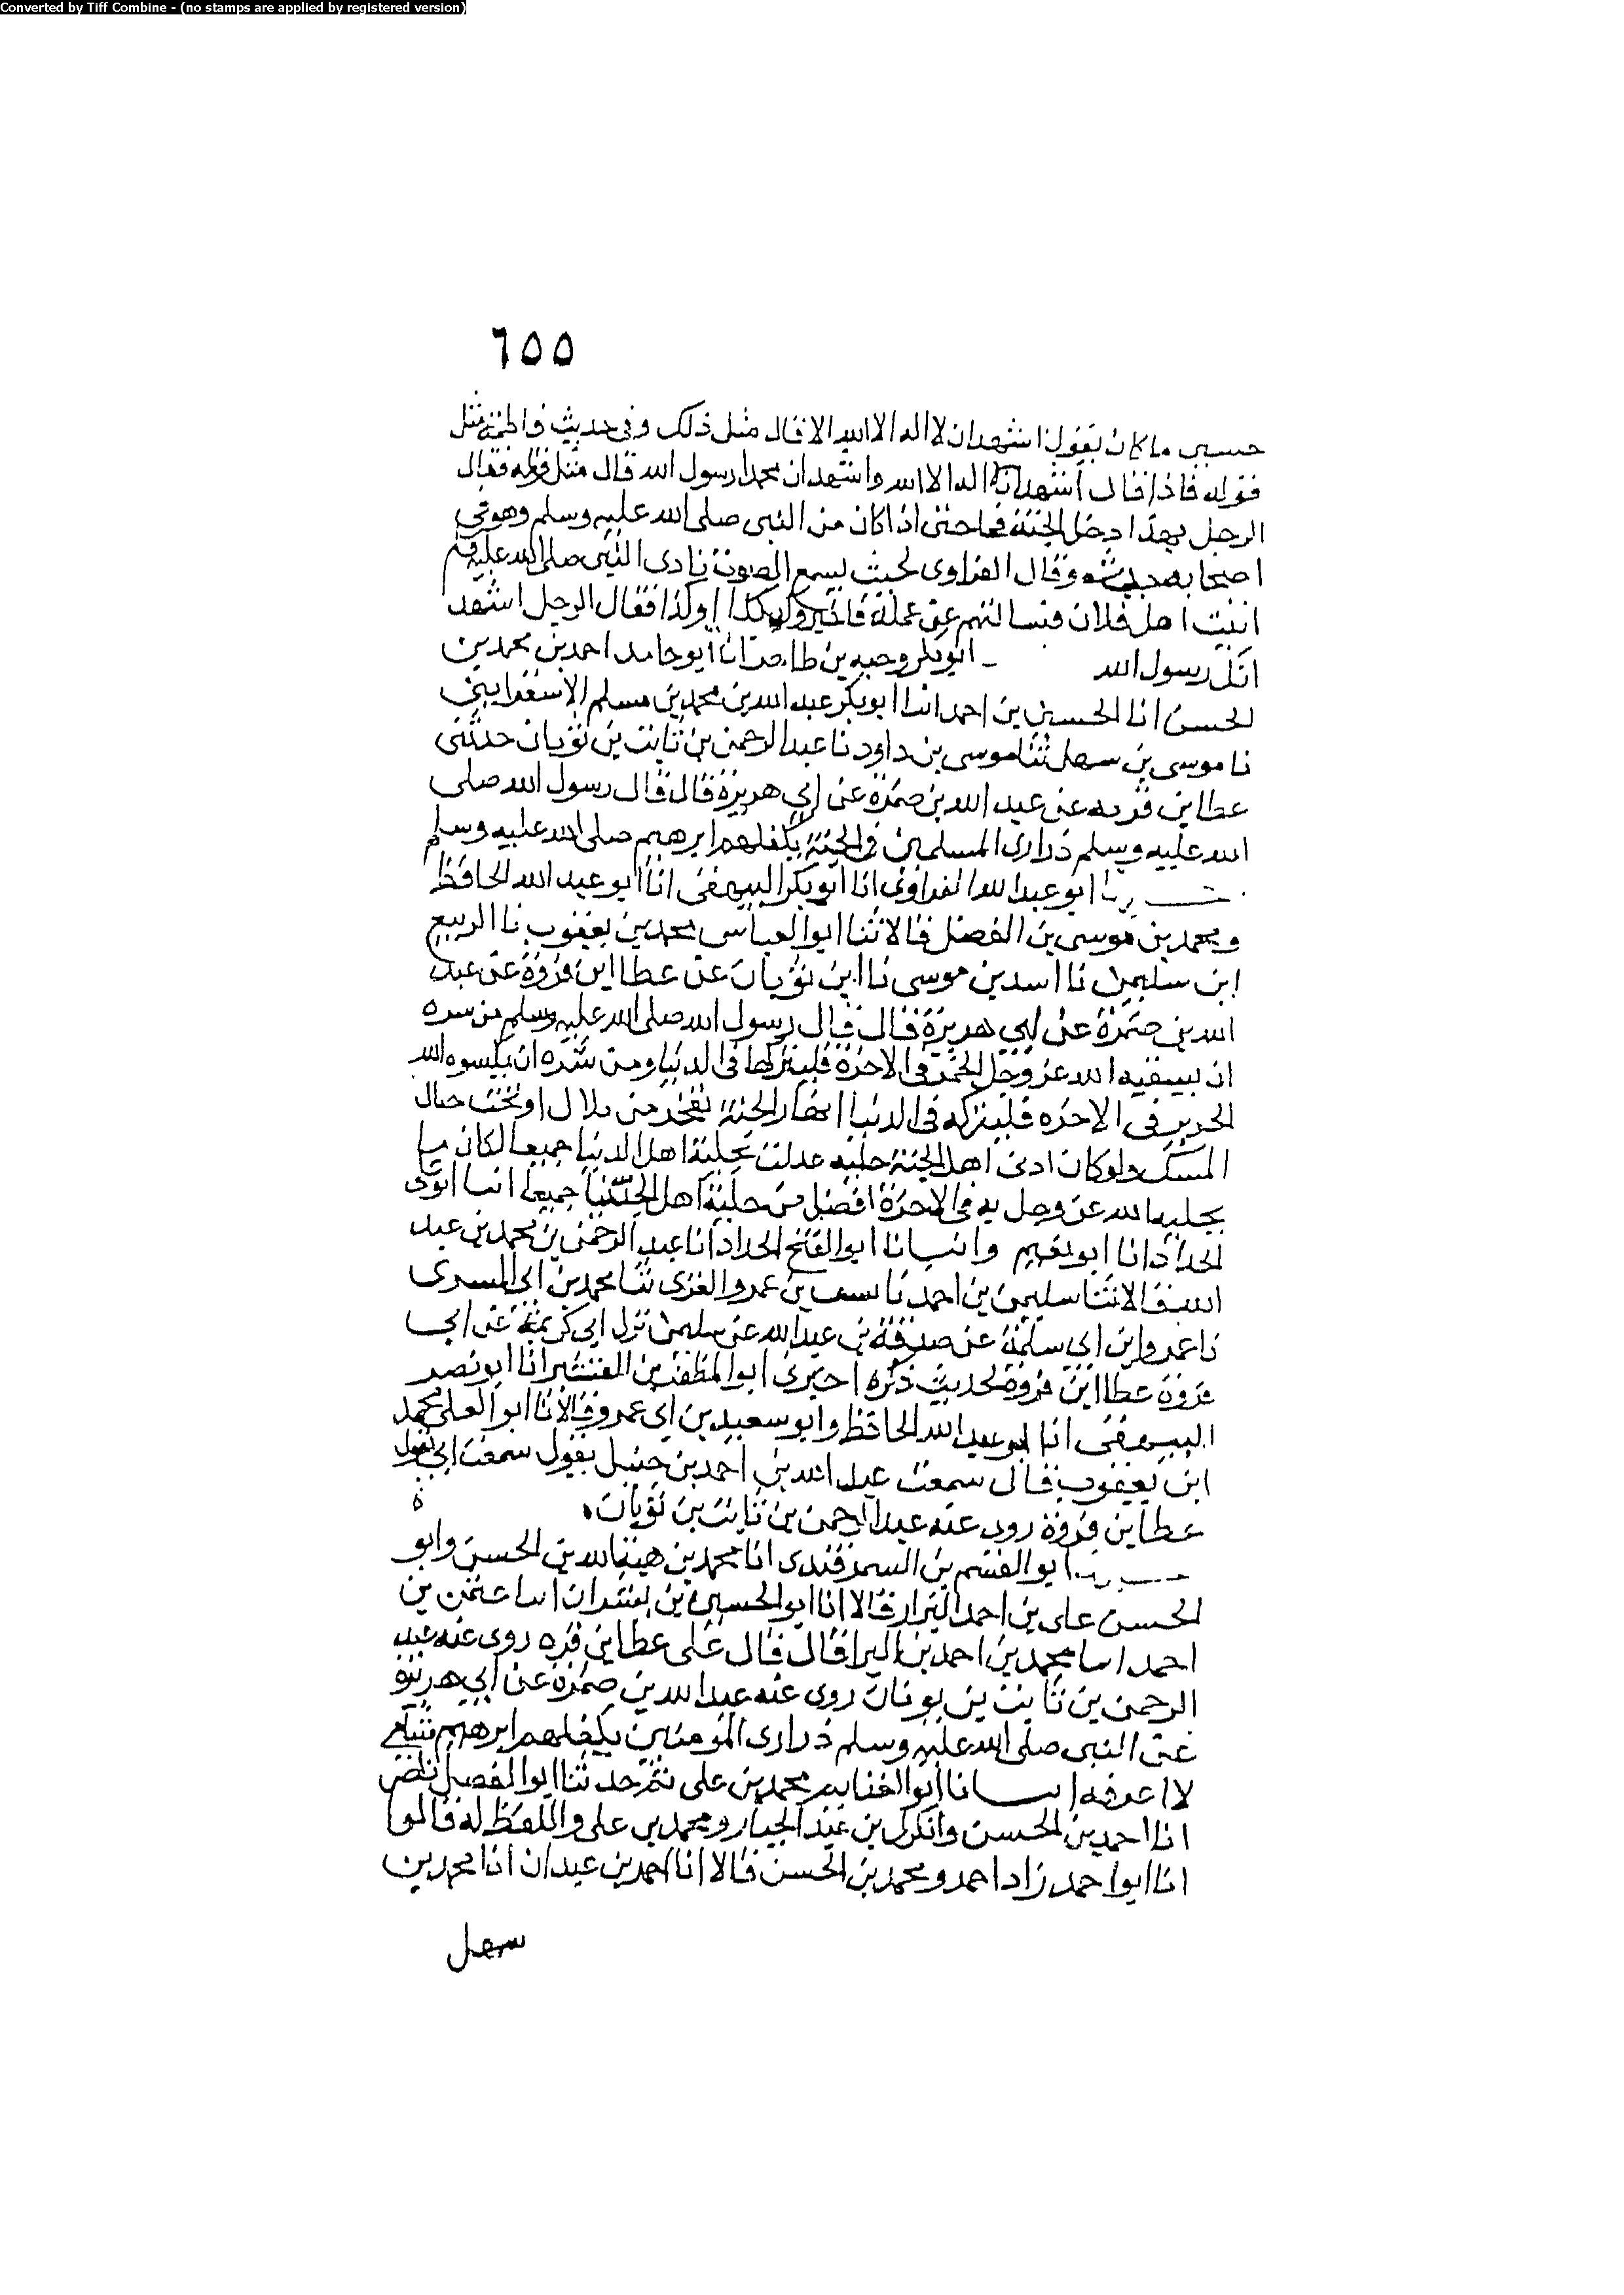 Converted by Tiff Combine - (no stamps are applied by registered version)
٦٥٥
حسبي ما كان يقول اشهد ان لا اله الا الله الا قال مثل ذلك وفي حديث فاطمة مثل
قوله فاذا قال اشهد ان لا اله الا الله واشهد ان محمدا رسول الله قال مثل قوله فقال
الرجل بهذا دخل الجنة فجا حتى اذا كان من النبي صلى الله عليه وسلم وهو في
اصحابه وقال الفراوى بحيث يسمع الصوت نادى النبي صلى الله عليه وسلم
اتيت اهل فلان فسالتهم عن عمله بكذا وكذا فقال الرجل اشهد
انك رسول الله ابو بكر وجيه بن طاهر انا ابو حامد احمد بن محمد بن
الحسن انا الحسين بن احمد انا ابو بكر عبد الله بن محمد بن مسلم الاسفرايينى
نا موسى بن سهل ثنا موسى بن داود نا عبد الرحمن بن ثابت بن ثوبان حدثنى
عطا بن قره عن عبد الله بن ضمرة عن ابي هريرة قال قال رسول الله صلى
الله عليه وسلم ذرارى المسلمين فى الجنة يكفلهم ابرهيم صلى الله عليه وسلم
ابو عبد الله الفراوى انا ابو بكر البيهقى انا ابو عبد الله الحافظ
ومحمد بن موسى بن الفضل قالا ثنا ابو العباس محمد بن يعقوب نا الربيع
ابن سليمن نا اسد بن موسى نا ابن ثوبان عن عطا ابن قروة عن عبد
الله بن ضمرة عن ابي هريرة قال قال رسول الله صلى الله عليه وسلم من سره
ان يسقيه الله عز وجل الخمر فى الاخرة فليتركها فى الدنيا ومن سره ان يكسوه الله
الحرير فى الاخره فليتركه فى الدنيا انهار الجنة تفجر من تلال او تحت جبال
المسك ولو كان ادنى اهل الجنة حلية عدلت بحلية اهل الدنيا جميعا لكان ما
يحليه الله عز وجل به فى الاخرة افضل من حلية اهل الدنيا جميعا انبا ابو على
الحداد انا ابو نعيم وانبانا ابو الفتح الحداد انا عبد الرحمن بن محمد بن عبيد
الله قالا ثنا سليمن بن احمد نا بن عمرو الغزى ثنا محمد بن ابى السرى
نا عمرو ابن ابي سلمة عن صدقة بن عبد الله عن سليمن ابي كريمة عن ابى
قروة عطا ابن قروة بحديث ذكره اخبرنى ابو المظفر بن القشيرى انا ابو نصر
البيهقى انا ابو عبد الله الحافظ وابو سعيد بن ابي عمرو قالا انا ابو العباس محمد
ابن يعقوب قال سمعت عبد الله بن احمد بن حنبل يقول سمعت ابى يقول
عطا بن قروة روى عنه عبد الرحمن بن ثابت بن ثوبان
ابو القسم بن السمرقندى انا محمد بن هبة الله بن الحسن وابو
الحسن على بن احمد البزار قالا انا ابو الحسين بن بشران انبا عثمن بن
احمد انبا محمد بن احمد بن البرا قال قال على عطا بن قره روى عنه عبد
الرحمن بن ثابت بن ثوبان روى عنه عبد الله بن ضمرة عن ابى هريرة
عن النبى صلى الله عليه وسلم ذرارى المؤمنين يكفلهم ابرهيم
لا اعرفه انبانا ابو الغنايم محمد بن على ثم حدثنا ابو الفضل بن ناصر
انا احمد بن الحسن والمبارك بن عبد الجبار ومحمد بن على واللفظ له قالوا
انا ابو احمد زاد احمد ومحمد بن الحسن قالا انا احمد بن عبدان انا محمد بن
سهل